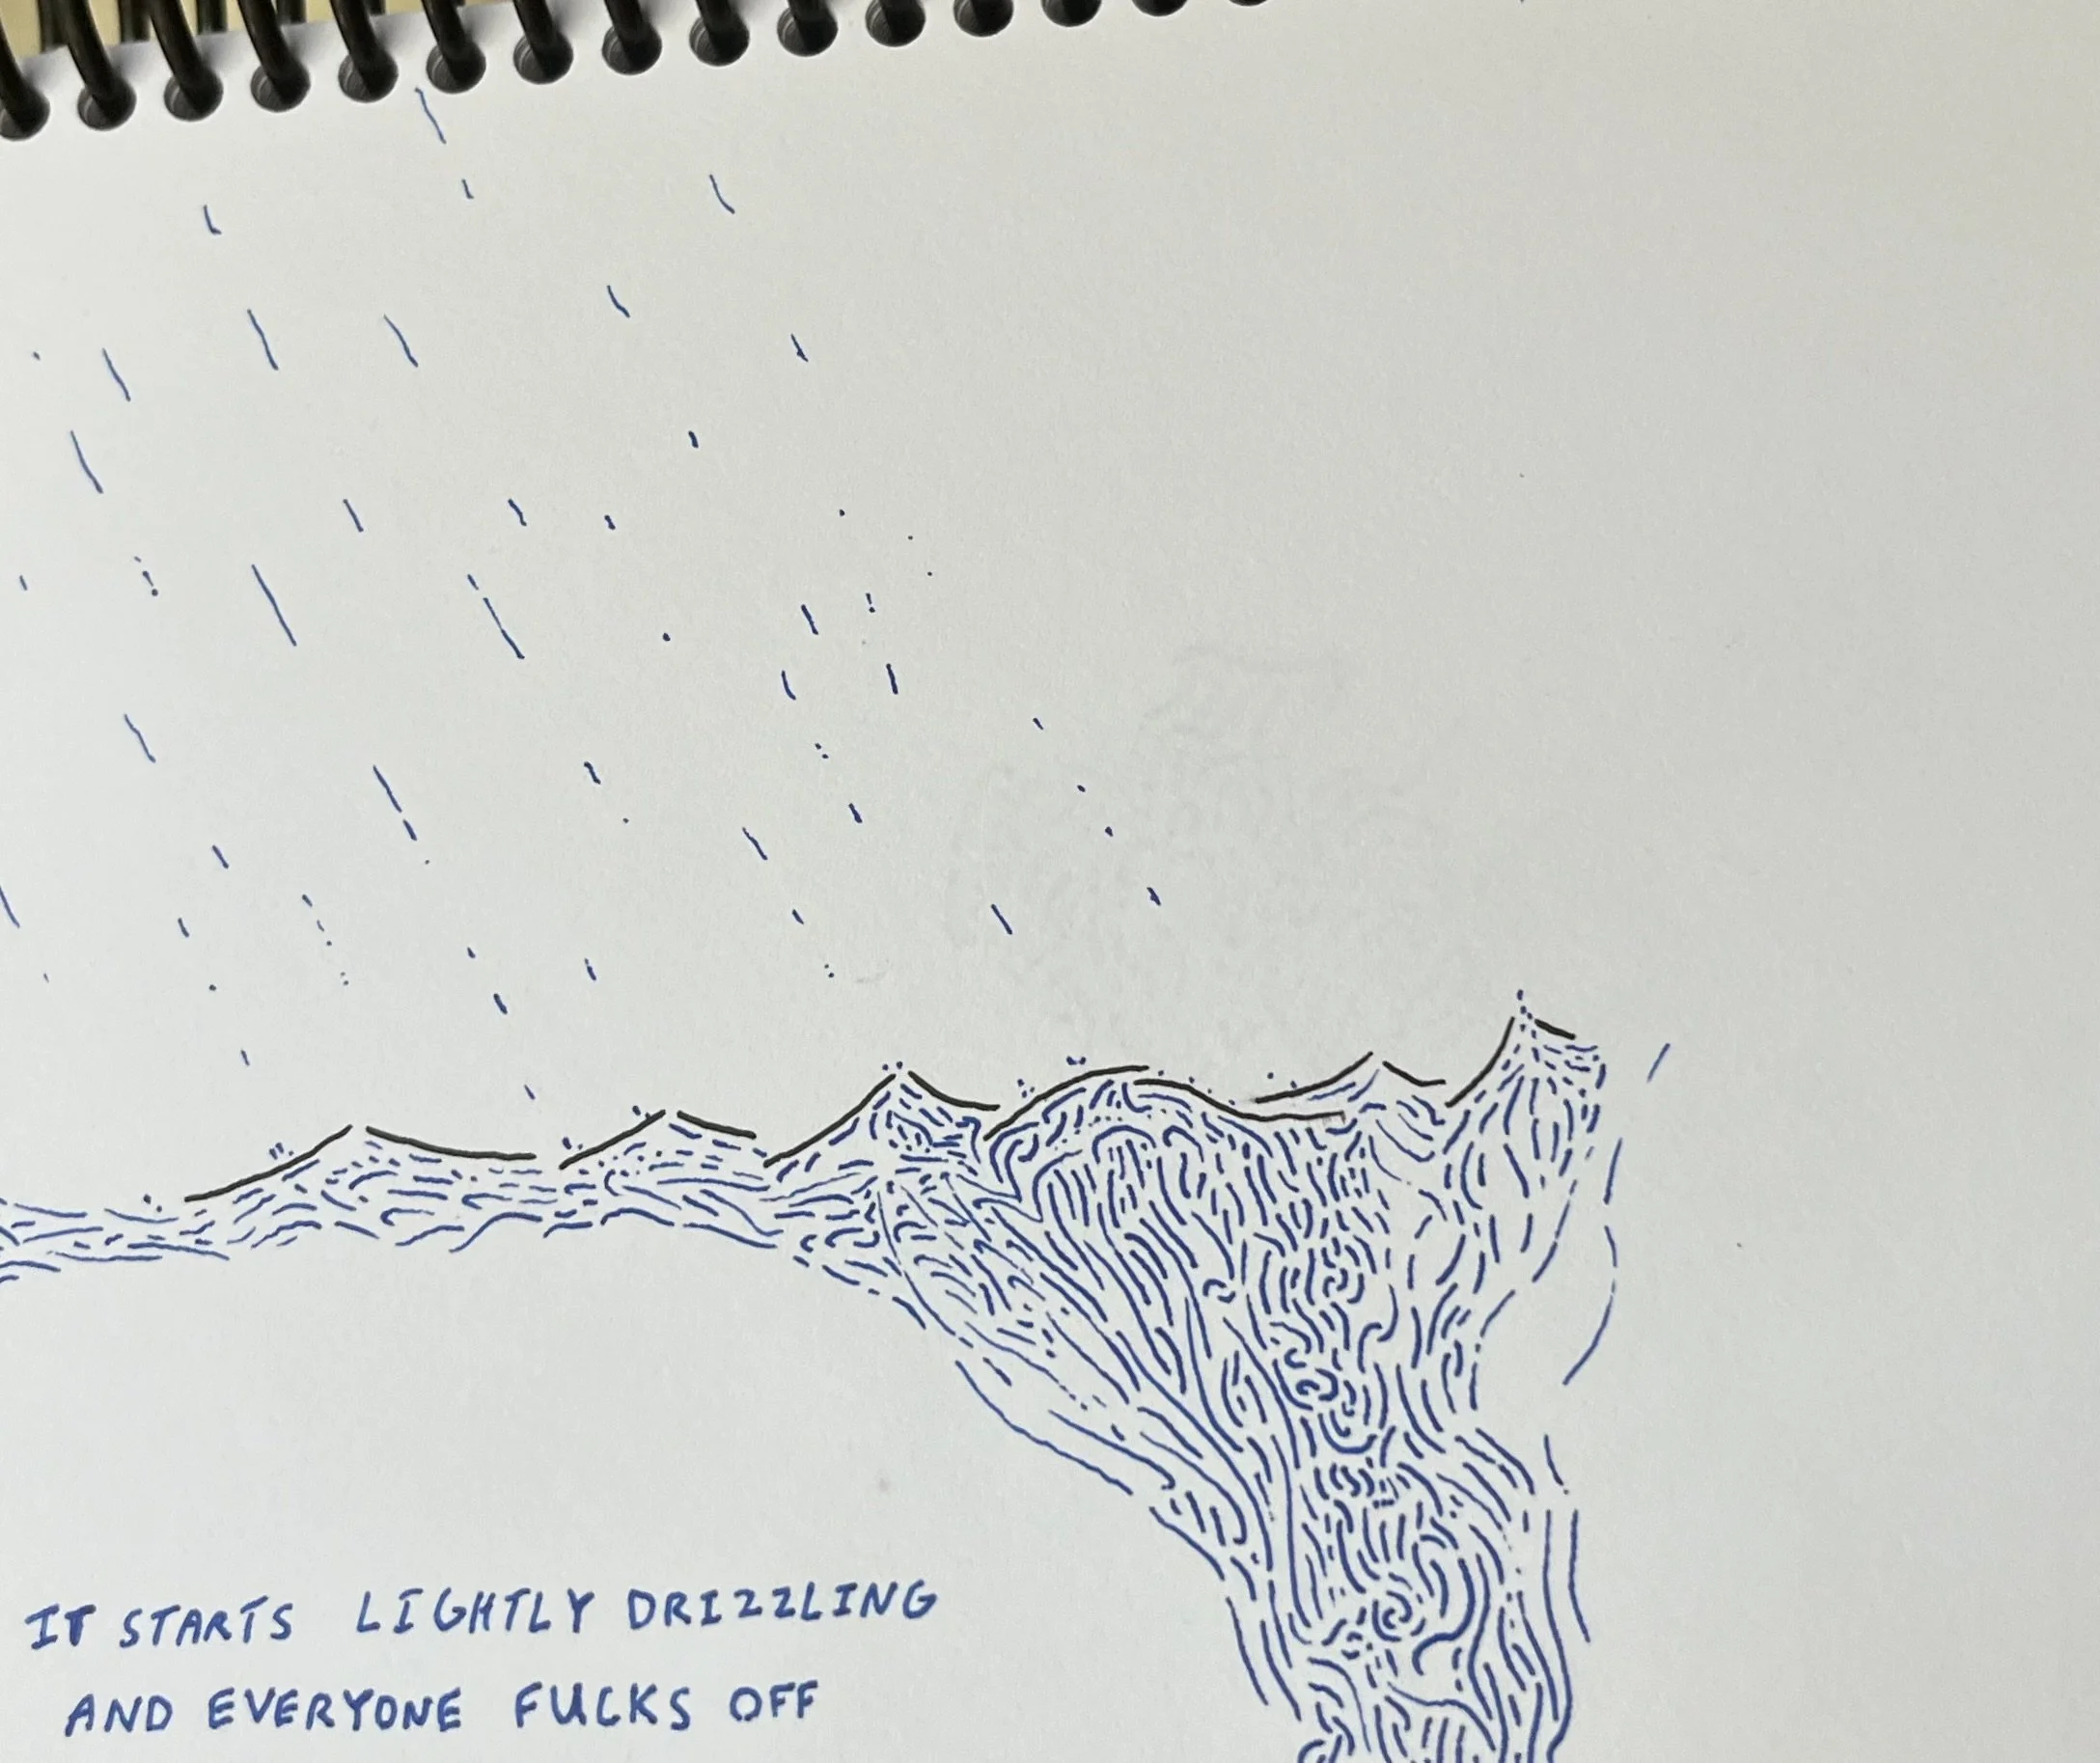 IT STARTS LIGHTLY DRIZZLING
AND EVERYONE FUCKS OFF